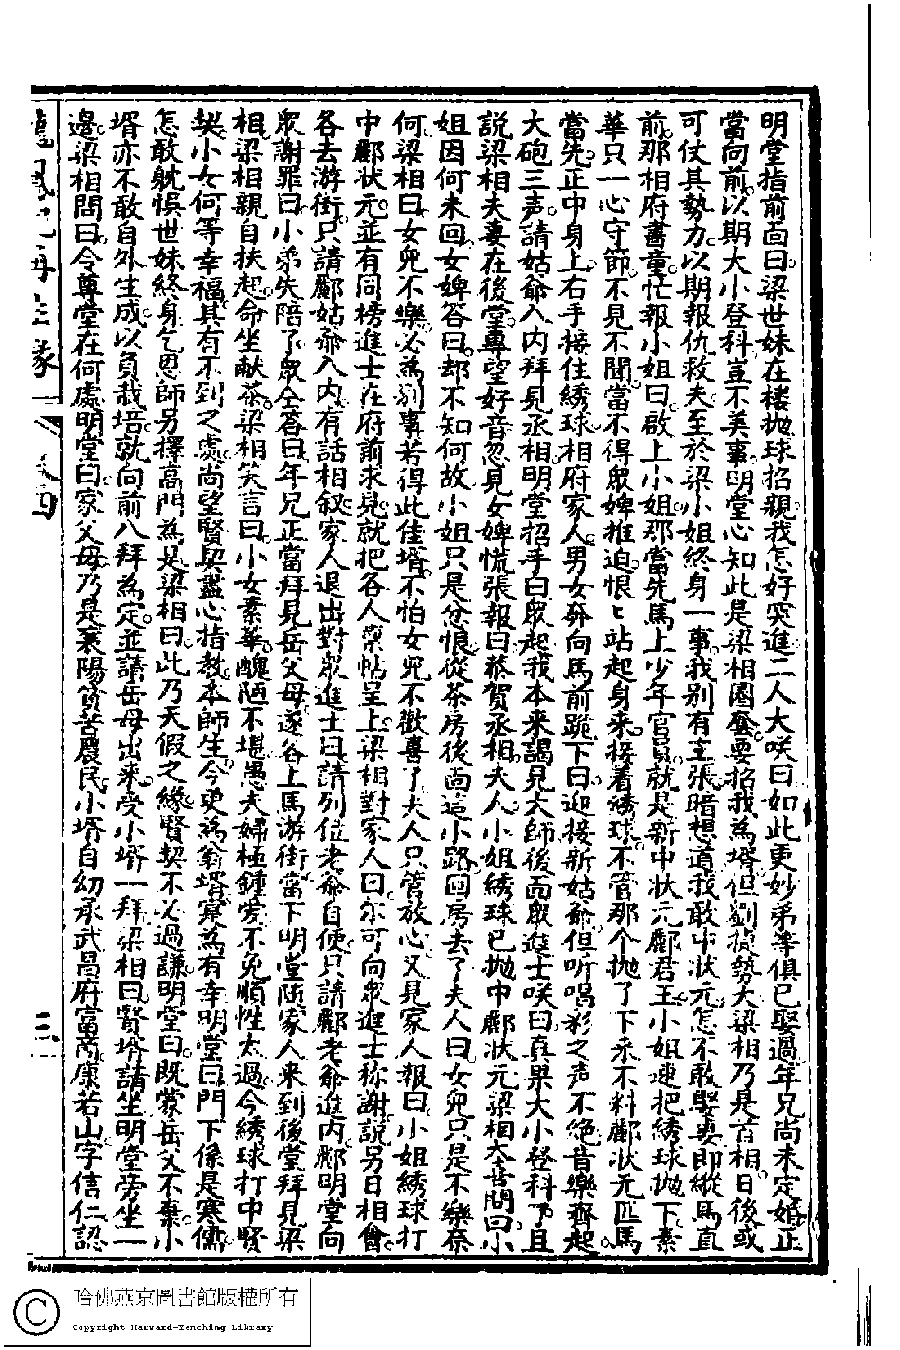 明堂指前面曰梁世妹在楼抛球招親我怎好突進二人大咲曰如此更妙弟等俱已娶過年兄尚未定婚正
當向前以期大小登科豈不美事明堂心知此是梁相圈套要招我為壻但劉捷勢大梁相乃是首相日後或
可仗其勢力以期報仇救夫至於梁小姐終身一事我別有主張暗想道我敢中状元怎不敢娶妻即縱馬直
前那相府書童忙報小姐曰啟上小姐那當先馬上少年官員就是新中状元酈君王小姐速把綉球抛下素
華只一心守節不見不聞當不得眾婢推迫恨〻站起身来接着綉球不管那个抛了下来不料酈状元匹馬
當先正中身上右手接住綉球相府家人男女奔向馬前跪下曰迎接新姑爺但听喝彩之声不絶音樂齊起
大砲三声請姑爺入内拜見丞相明堂招手曰眾起我本来謁見太師後面眾進士咲曰真果大小登科了且
説梁相夫妻在後堂專望好音忽見女婢慌張報曰恭賀丞相夫人小姐綉球已抛中酈状元梁相大喜問曰小
姐因何未回女婢答曰却不知何故小姐只是忿恨從茶房後面這小路回房去了夫人曰女兒只是不樂奈
何梁相曰女兒不樂必為別事若得此佳壻不怕女兒不歡喜了夫人只管放心又見家人報曰小姐綉球打
中酈状元並有同榜進士在府前求見就把各人稟帖呈上梁相對家人曰尔可向眾進士称謝説另日相會
各去游街只請酈姑爺入内有話相叙家人退出對眾進士曰請列位老爺自便只請酈老爺進内酈明堂向
眾謝罪曰小弟失陪了眾仝答曰年兄正當拜見岳父母遂各上馬游街當下明堂随家人来到後堂拜見梁
相梁相親自扶起命坐献茶梁相笑言曰小女素華醜陋不堪愚夫婦極鍾爱不免順性太過今綉球打中賢
契小女何等幸福其有不到之處尚望賢契盡心指教本師生今更為翁壻寔為有幸明堂曰門下係是寒儒
怎敢躭悞世妹終身乞恩師另擇高門為是梁相曰此乃天假之緣賢契不必過謙明堂曰既蒙岳父不棄小
壻亦不敢自外生成以負栽培就向前八拜為定並請岳母出来受小壻一拜梁相曰賢壻請坐明堂旁坐一
邊梁相問曰令尊堂在何處明堂曰家父母乃是襄陽貧苦農民小壻自幼承武昌府富商康若山字信仁認
卷四
三
哈佛燕京圖書館版權所有
Copyright Harvard-Yenching Library